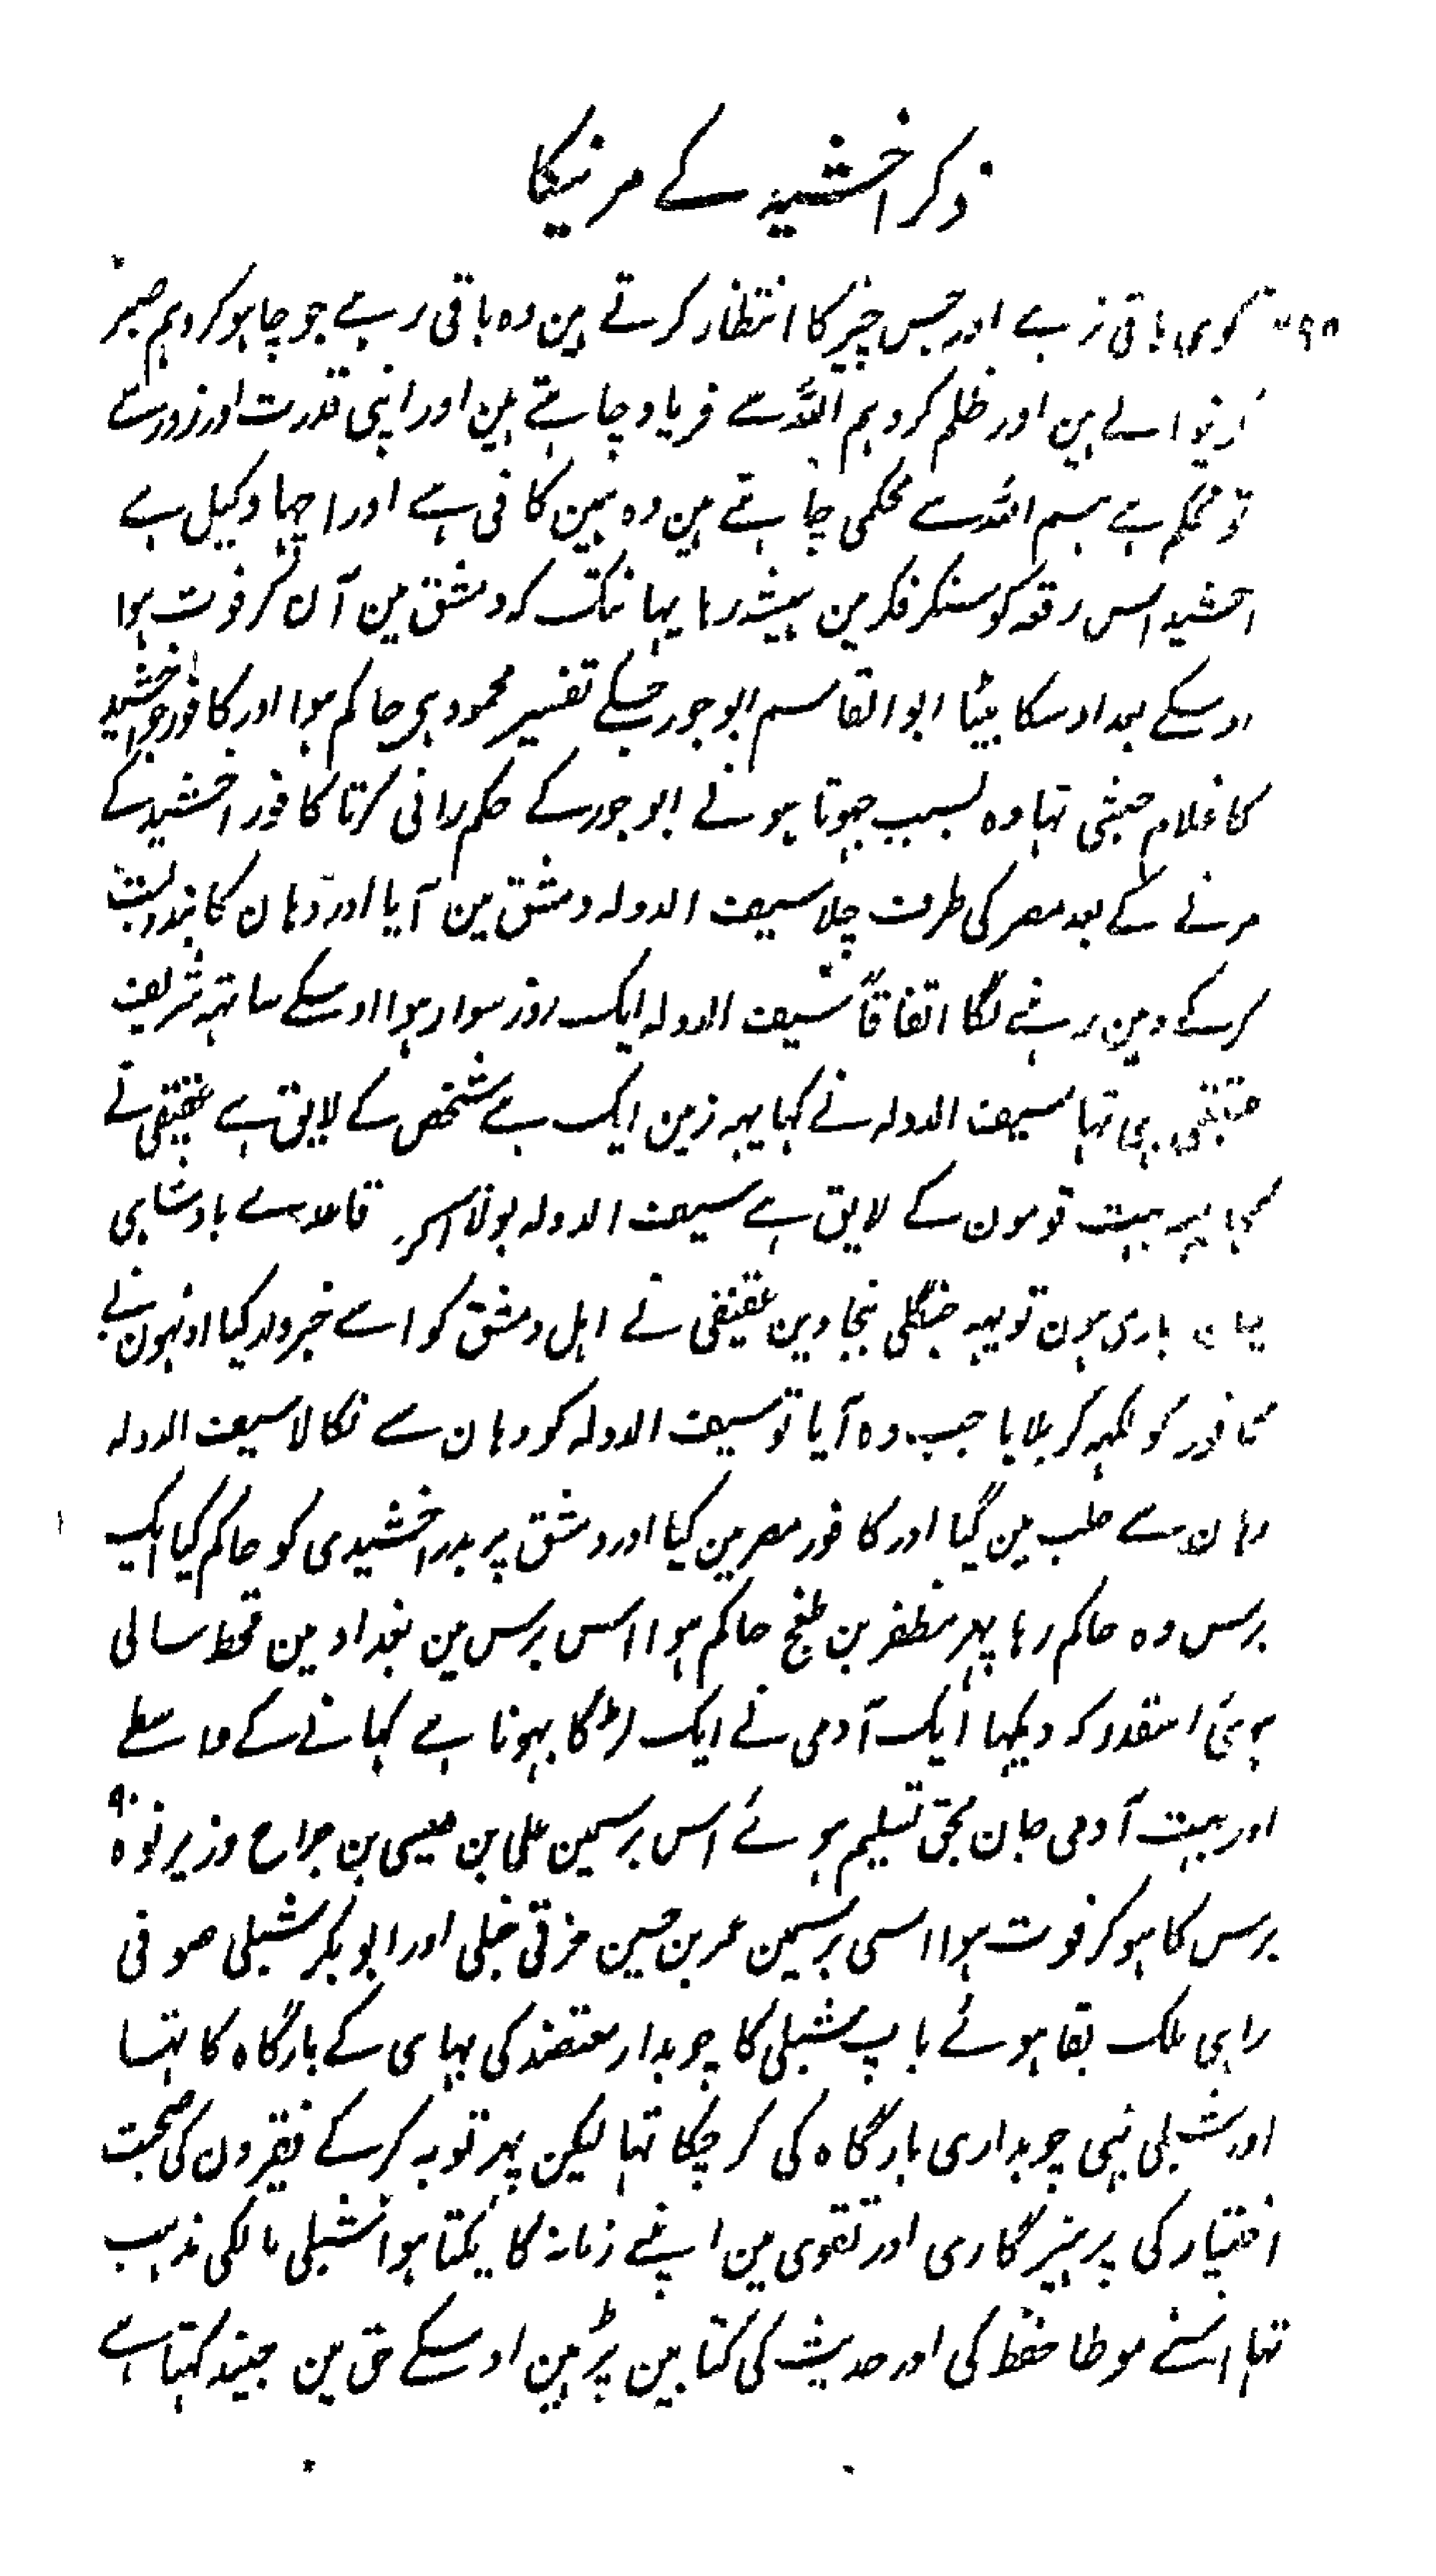 ذکر اخشید کے مرنیکا
کوی باقی نرہے اور جس چیز کا انتظار کرتے ہین وہ باقی رہے جو چاہو کرو ہم صبر
کرنیوالے ہین اور ظلم کرو ہم اللہ سے فریاد چاہتے ہین اور اپنی قدرت اور زور سے
تو محکم ہے ہم اللہ سے محکمی چاہتے ہین وہ ہمین کافی ہے اور اچہا وکیل ہے
اخشید اس رقعہ کو سنکر فکر مین ہمیشہ رہا یہانتک کہ دمشق مین آن کر فوت ہوا
اوسکے بعد اوسکا بیٹا ابو القاسم ابوجور جسکے تفسیر محمود ہی حاکم ہوا اور کافور جو اخشید
کا غلام حبشی تہا وہ بسبب چہوٹا ہونے ابوجور کے حکمرانی کرتا کافور اخشید کے
مرنے کے بعد مصر کی طرف چلا سیف الدولہ دمشق مین آیا اور وہان کا بندوبست
کرکے وہین رہنے لگا اتفاقاً سیف الدولہ ایک روز سوار ہوا اوسکے ساتہہ شریف
عقیقی بہی تہا سیف الدولہ نے کہا یہہ زمین ایک ہے شخص کے لایق ہے عقیقی نے
کہا یہہ بہت قومون کے لایق ہے سیف الدولہ بولا اگر قاعدے بادشاہی
یہان جاری ہون تو یہہ جنگلی بنجاوین عقیقی نے اہل دمشق کو اسے خبردار کیا اونہون نے
کافور کو لکہہ کر بلایا جب وہ آیا تو سیف الدولہ کو وہان سے نکالا سیف الدولہ
وہان سے حلب مین گیا اور کافور مصر مین گیا اور دمشق پر بدر اخشیدی کو حاکم کیا ایک
برس وہ حاکم رہا پہر مظفر بن طغج حاکم ہوا اس برس مین بغداد مین قحط سالی
ہوئی اسقدر کہ دیکہا ایک آدمی نے ایک لڑکا بہونا ہے کہانے کے واسطے
اور بہت آدمی جان بحق تسلیم ہوئے اس برسمین علی بن عیسی بن جراح وزیر نوہ ۹۰
برس کا ہوکر فوت ہوا اسی برسمین عمر بن حسین خرقی حنبلی اور ابوبکر شبلی صوفی
راہی ملک بقا ہوئے باپ شبلی کا چوبدار معتضد کی بہای کے بارگاہ کا تہا
اور شبلی بہی چوبداری بارگاہ کی کر چکا تہا لیکن پہر توبہ کرکے فقیرون کی صحبت
اختیار کی پرہیزگاری اور تقوی مین اپنے زمانہ کا یکتا ہوا شبلی مالکی مذہب
تہا اسنے موطا حفظ کی اور حدیث کی کتابین پڑہین اوسکے حق مین جنید کہتا ہے